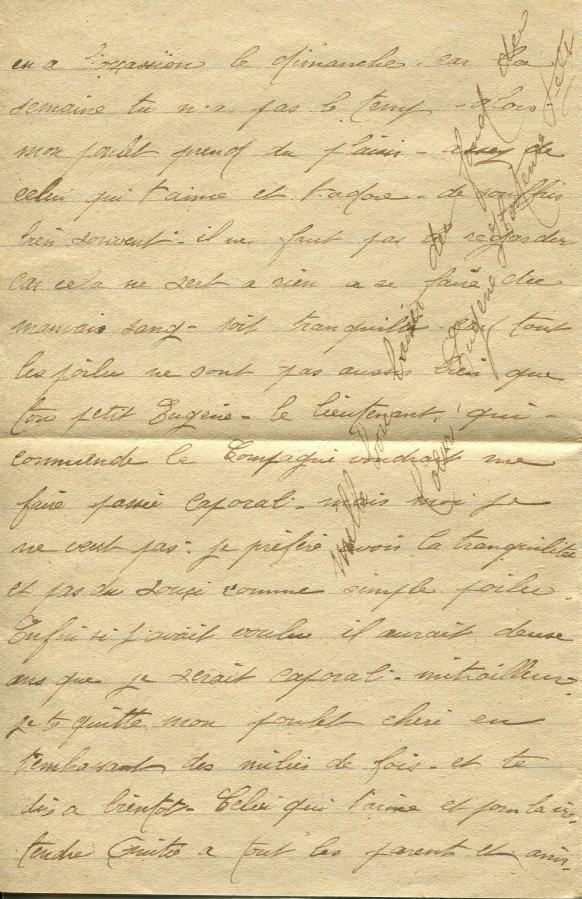 en a l'occassion le dimanche. car la
semaine tu n'a pas le temp - alors
mon poulet prend du plaisir - de
celui qui t'aime et t'adore - de
bien souvent - il ne faut pas regarder
car cela ne sert a rien a se faire du
mauvais sang - soit tranquille - tout
les poilu ne sont pas aussi bien que
ton petit Eugène - le lieutenant qui -
commende la Compagni voudrait me
faire passé caporal - mais moi je
ne veut pas - je préfère avoir la tranquilitée
et pas du souci comme simple poilu
Enfin si j'avait voulu il aurait deuse
ans que je serait caporal - mitrailleur
je te quitte mon poulet cheri en
t'embrassant des miliers de fois - et te
dis a bientot - Celui qui t'aime et pour la vie -
tendre a tout les parent et amis -
Mille bon baiser du fond du
Coeur Eugène